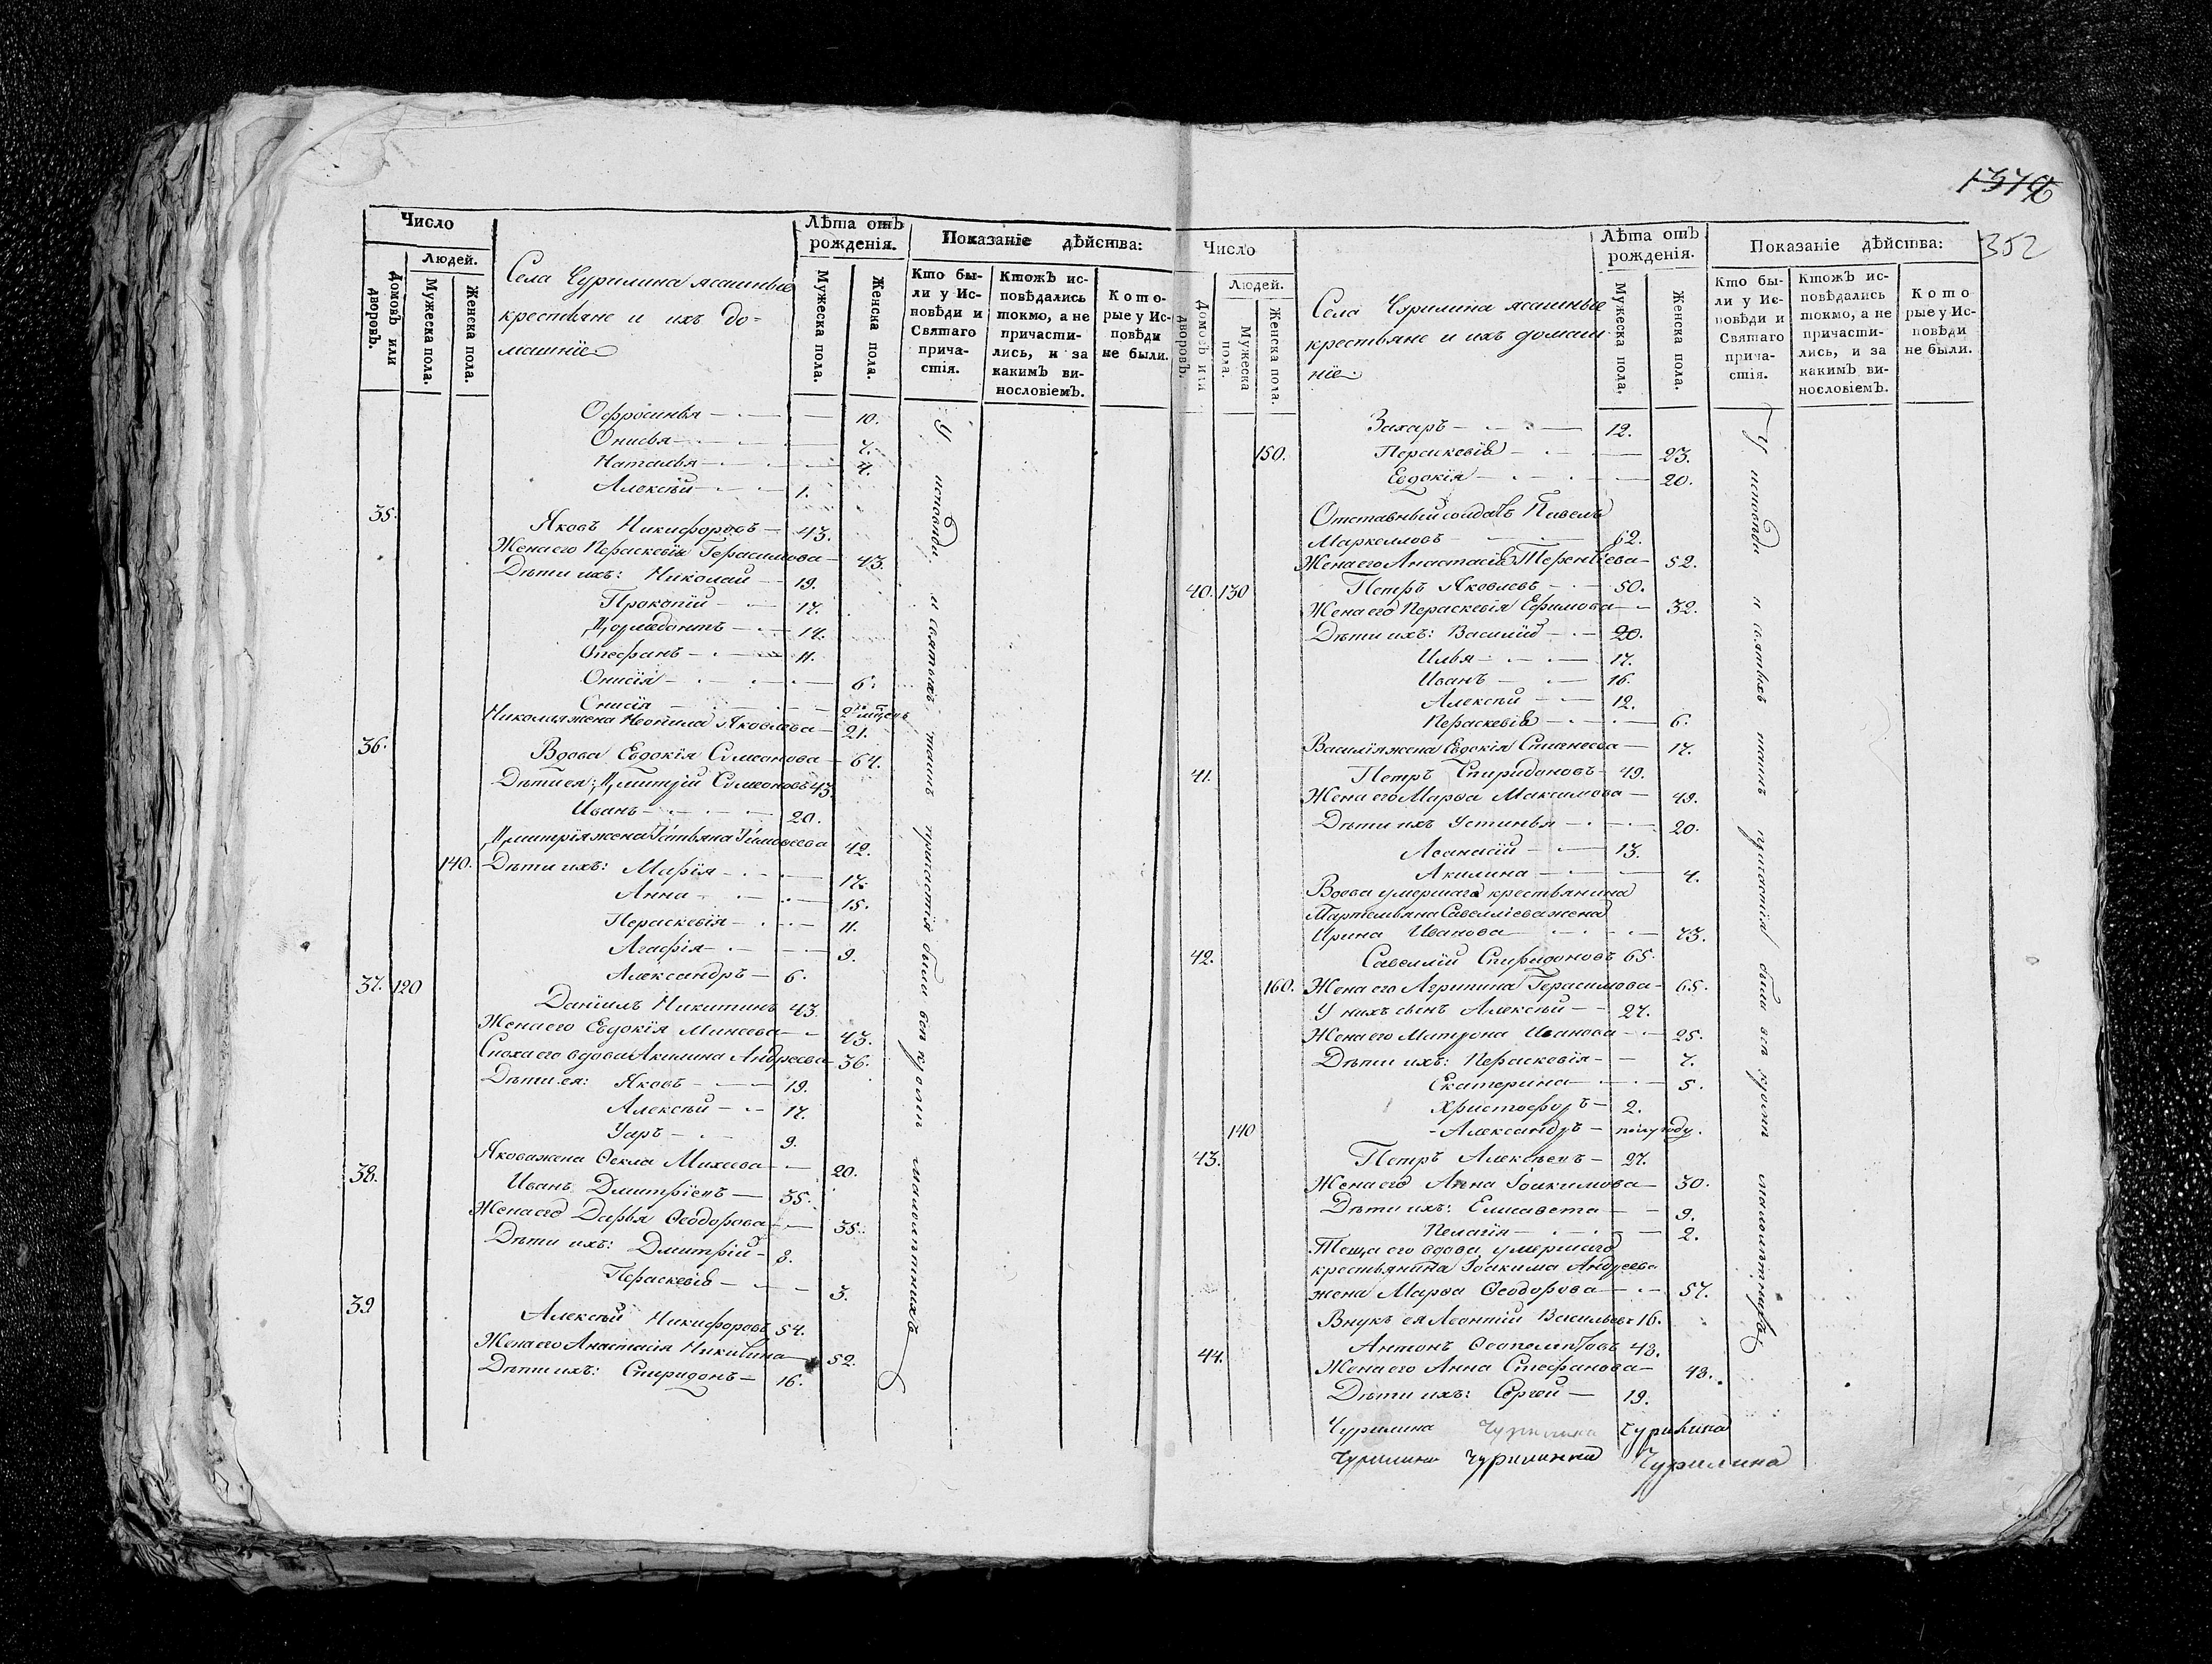 Число
Людей.
Домовъ или дворовъ.
Мужеска пола.
Женска пола.
Села Чурилина ясашные
крестьяне и ихъ до=
машніе
Лѣта отъ рожденія.
Мужеска пола.
Женска пола.
Показаніе дѣйства:
Кто были у Исповѣди и Святаго причастія.
Ктожъ исповѣдались токмо, а не причастились, и за какимъ винословіемъ.
Которые у Исповѣди не были.
Офросинья 10.
Онисья 7.
Наталья 4.
Алексѣй 1.
35. Яковъ Никифоровъ 43.
Жена его Пераскевія Герасимова 43.
Дѣти ихъ: Николай 19.
Прокопій 17.
Дормедонтъ 14.
Стефанъ 11.
Онисія 6.
Онисія
Николая жена Неонила Яковлева 21.
36. Вдова Евдокія Симеонова 64.
Дѣти ея: Димитрій Симеоновъ 43.
Иванъ 20.
Димитрія жена Татьяна Тимоѳеева 42.
140. Дѣти ихъ: Марія 17.
Анна 15.
Пераскевія 11.
Агафія 9.
Александръ 6.
37. 120 Даніилъ Никитинъ 43.
Жена его Евдокія Минеева 43.
Сноха его вдова Акилина Андреева 36.
Дѣти ея: Яковъ 19.
Алексѣй 17.
Уаръ 9.
Якова жена Ѳекла Михеева 20.
38. Иванъ Дмитріевъ 35.
Жена его Дарья Ѳеодорова 35.
Дѣти ихъ: Дмитрій 8.
Пераскевія 3.
39 Алексѣй Никифоровъ 54.
Жена его Анастасія Никитина 52.
Дѣти ихъ: Спиридонъ 16.
У исповѣди и святыхъ таинъ причастія были всѣ кромѣ малолѣтнихъ
352
Число
Людей.
Домовъ или дворовъ.
Мужеска пола.
Женска пола.
Села Чурилина ясашные
крестьяне и ихъ домаш
ніе.
Лѣта отъ рожденія.
Мужеска пола.
Женска пола.
Показаніе дѣйства:
Кто были у Исповѣди и Святаго причастія.
Ктожъ исповѣдались токмо, а не причастились, и за какимъ винословіемъ.
Которые у Исповѣди не были.
Захаръ 12.
150. Пераскевія 23.
Евдокія 20.
Отставный солдатъ Павелъ
Маркелловъ 62.
Жена его Анастасія Терентіева 52.
40. 130 Петръ Яковлевъ 50.
Жена его Пераскевія Ефимова 32.
Дѣти ихъ: Василій 20.
Илья 17.
Иванъ 16.
Алексѣй 12.
Пераскевія 6.
Василія жена Евдокія 17.
41. Петръ Спиридоновъ 49.
Жена его Марѳа Максимова 49.
Дѣти ихъ Устинья 20.
Аѳанасій 13.
Акилина 4.
Вдова умершаго крестьянина
Мартемьяна Савелліева жена
Ирина Иванова 73.
42. Савеллій Спиридоновъ 65.
160. Жена его Агрипина Герасимова 65.
У нихъ сынъ Алексѣй 27.
Жена его Матрона Иванова 25.
Дѣти ихъ: Пераскевія 7.
Екатерина 5.
Христофоръ 2.
140 Александръ полугоду.
43. Петръ Алексѣевъ 27.
Жена его Анна Іоакимова 30.
Дѣти ихъ: Елисавета 9.
Пелагія 2.
Теща его вдова умершаго
крестьянина Іоакима Андреева
жена Марѳа Ѳеодорова 57.
Внукъ ея Леонтій Васильевъ 16.
44. Антонъ 48.
Жена его Анна Стефанова 48.
Дѣти ихъ: Сергей 19.
У исповѣди и святыхъ таинъ причастія были всѣ кромѣ малолѣтнихъ
Чурилина Чурилина Чурилина
Чурилина Чурилина Чурилина